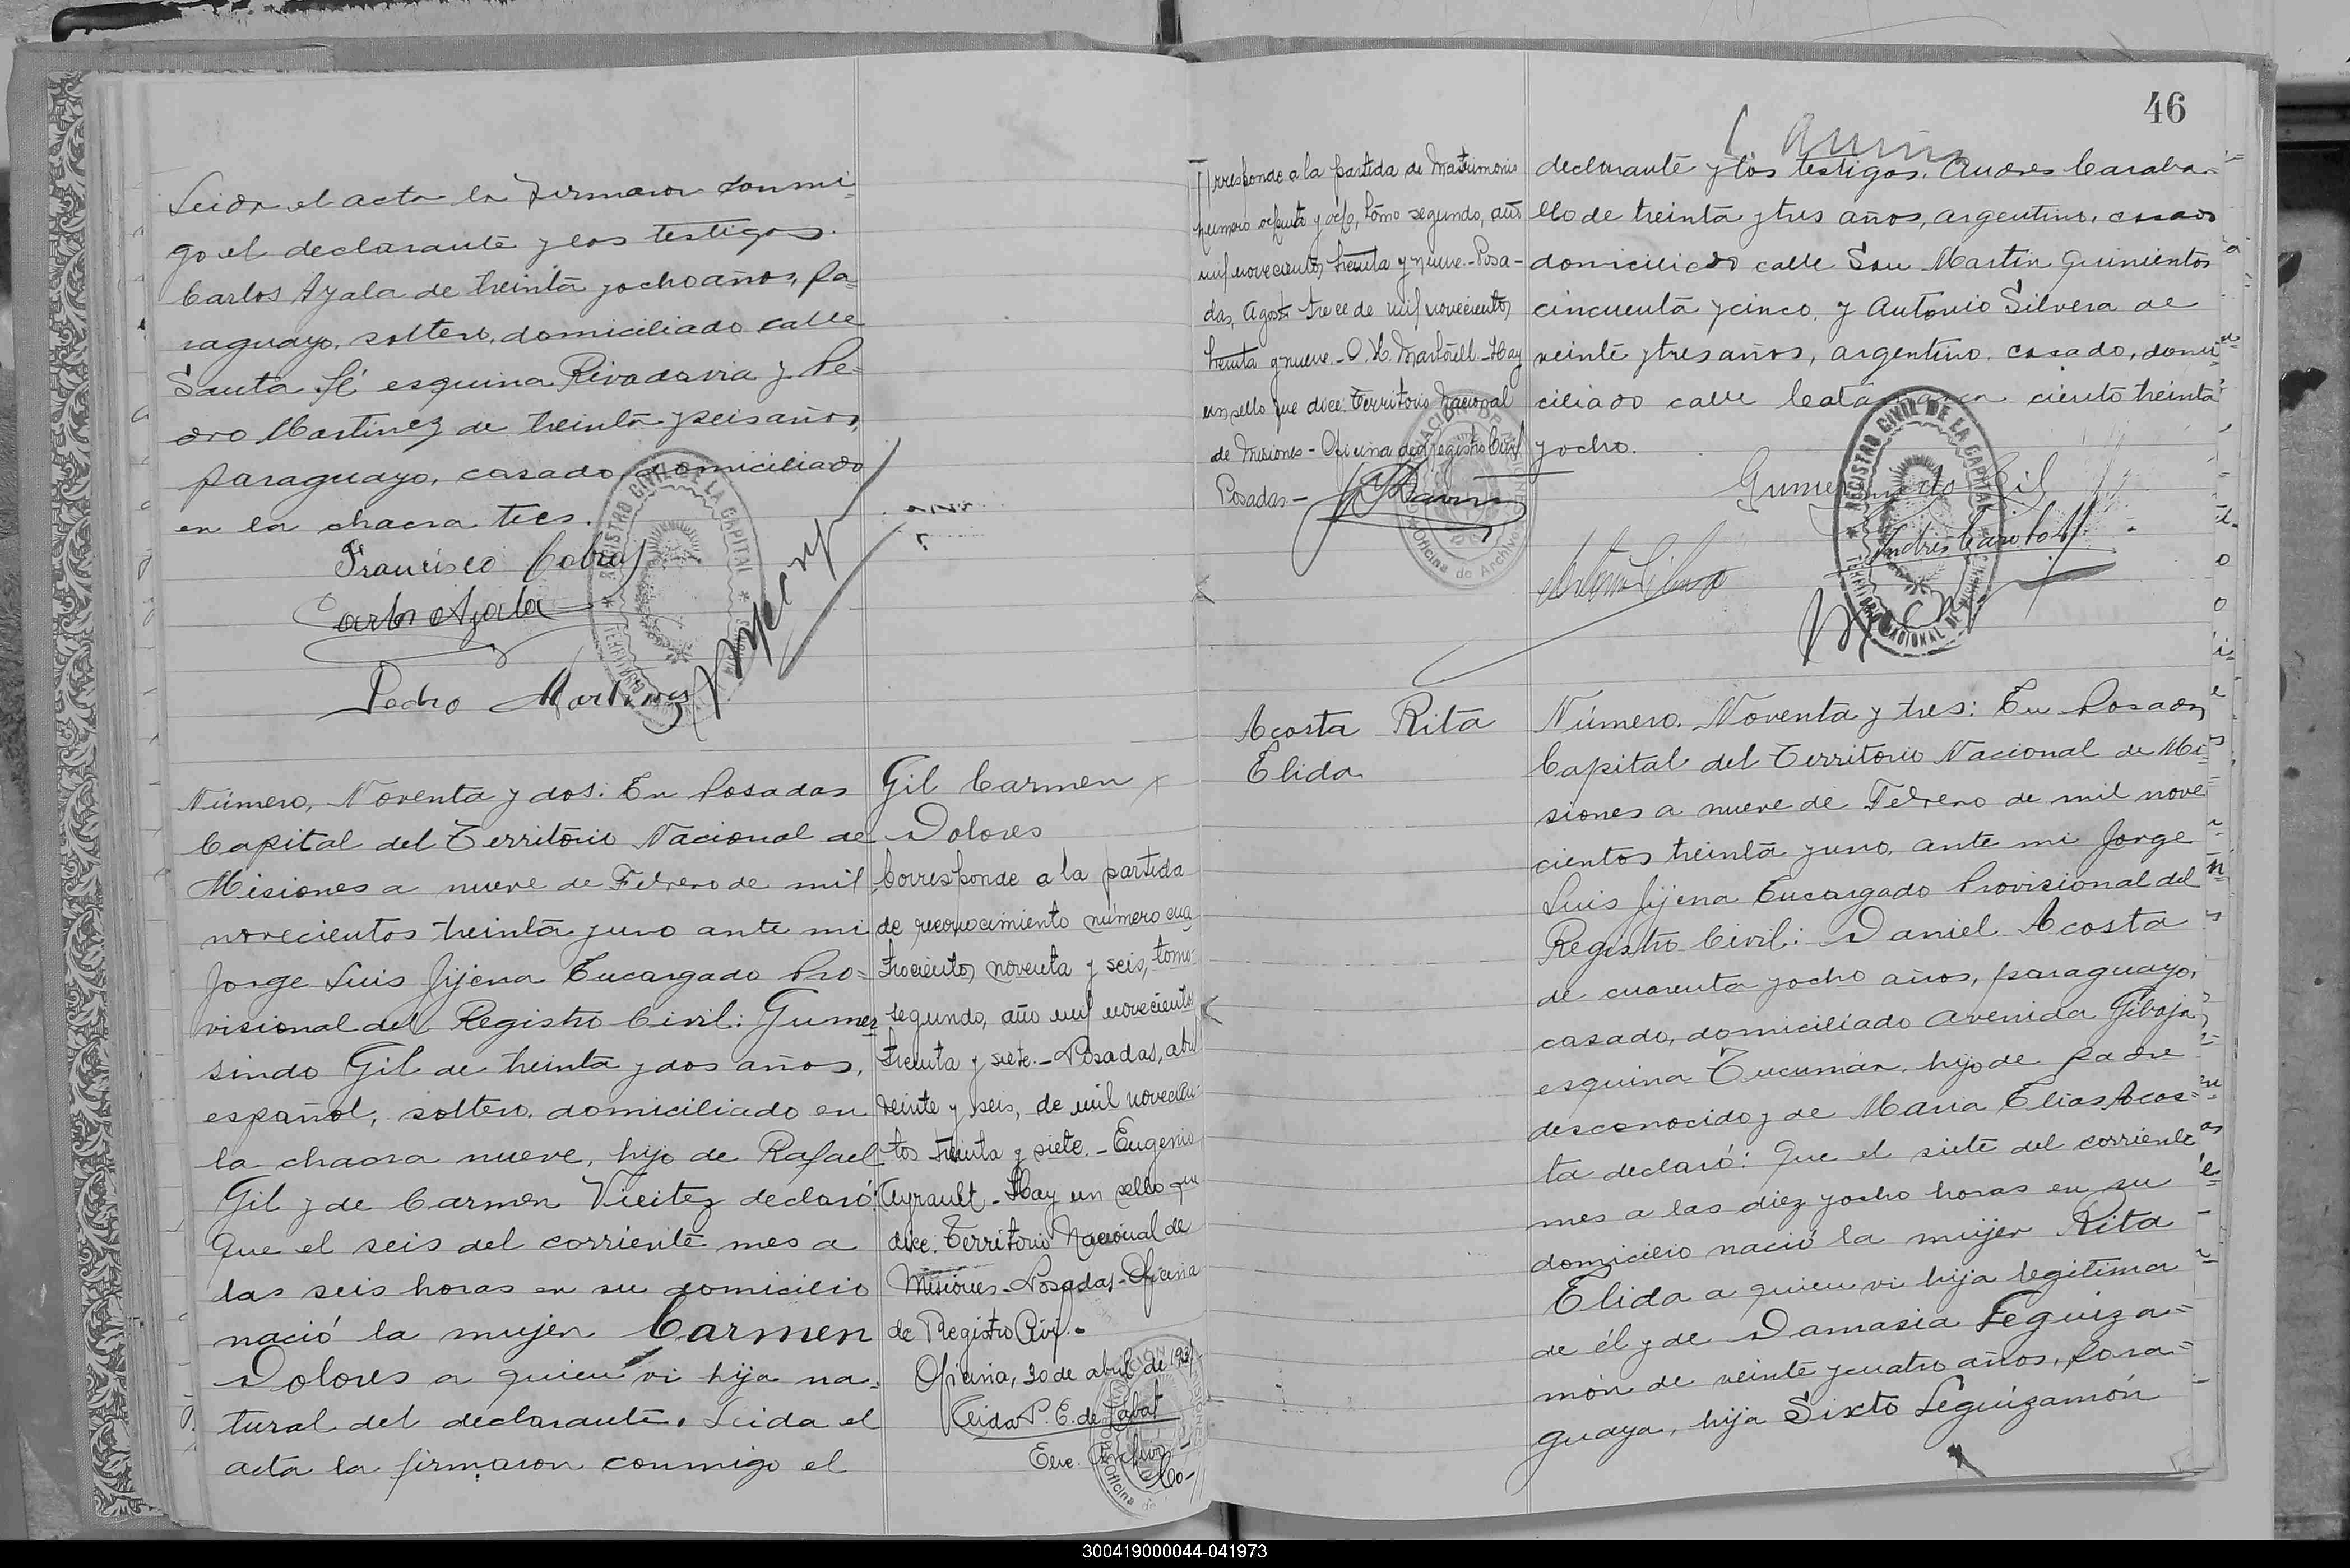 Leida el acta la firmaron conmi-
go el declarante y los testigos.
Carlos Ayala de treinta y ocho años, pa-
raguayo, soltero, domiciliado calle
Santa Fé esquina Rivadavia y Pe-
dro Martinez de treinta y seis años,
paraguayo, casado, domiciliado
en la chacra tres.
Francisco Cabral
Carlos Ayala
Pedro Martinez
REGISTRO CIVIL DE LA CAPITAL
Número, Noventa y dos: En Posadas
Capital del Territorio Nacional de
Misiones a nueve de Febrero de mil
novecientos treinta y uno ante mi
Jorge Luis Jijena Encargado Pro-
visional del Registro Civil: Gumer-
sindo Gil de treinta y dos años,
español, soltero, domiciliado en
la chacra nueve, hijo de Rafael
Gil y de Carmen Vieitez declaró:
Que el seis del corriente mes a
las seis horas en su domicilio
nació la mujer Carmen
Dolores a quien vi hija na-
tural del declarante. Leida el
acta la firmaron conmigo el
Gil Carmen
Dolores
Corresponde a la partida
de reconocimiento número cua
trocientos noventa y seis, tomo
segundo, año mil novecientos
treinta y siete.- Posadas, abril
veinte y seis, de mil novecien-
tos treinta y siete.- Eugenio
Ayrault - Hay un sello que
dice: Territorio Nacional de
Misiones - Posadas - Oficina
de Registro Civil.-
Oficina, 30 de abril de 1937
Enc. Archivo
46
Corresponde a la partida de Matrimonio
número ochenta y ocho, tomo segundo, año
mil novecientos treinta y nueve.- Posa-
das, Agosto trece de mil novecientos
treinta y nueve.- O. H. Martorell - Hay
un sello que dice: Territorio Nacional
de Misiones - Oficina del Registro Civil
Posadas -
Oficina de Archivo
declarante y los testigos. Andres Caraba-
llo de treinta y tres años, argentino, casado
domiciliado calle San Martin quinientos
cincuenta y cinco, y Antonio Silvera de
veinte y tres años, argentino, casado, domi-
ciliado calle Catamarca ciento treinta
y ocho.
Gumersindo Gil
Andrés Caraballo
Antonio Silvera
REGISTRO CIVIL DE LA CAPITAL
TERRITORIO NACIONAL DE MISIONES
Acosta Rita
Elida
Número. Noventa y tres: En Posadas
Capital del Territorio Nacional de Mi-
siones a nueve de Febrero de mil nove
cientos treinta y uno, ante mi Jorge
Luis Jijena Encargado Provisional del
Registro Civil: Daniel Acosta
de cuarenta y ocho años, paraguayo,
casado, domiciliado Avenida Gibaja
esquina Tucumán, hijo de padre
desconocido y de Maria Elias Acos-
ta declaró: Que el siete del corriente
mes a las diez y ocho horas en su
domicilio nació la mujer Rita
Elida a quien vi hija legítima
de él y de Damasia Leguiza-
món de veinte y cuatro años, para-
guaya, hija Sixto Leguizamón
300419000044-041973